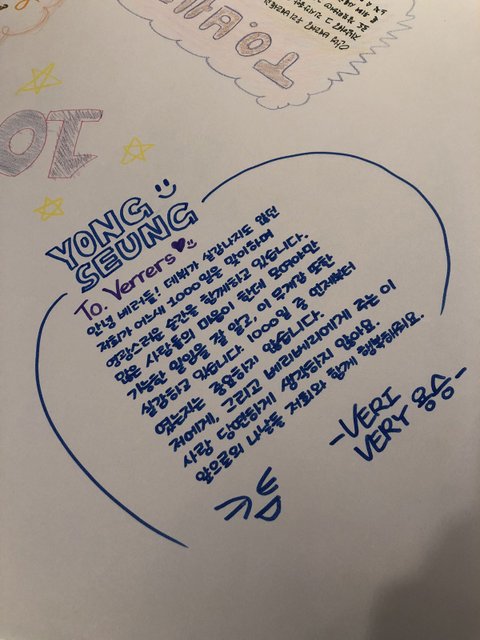 TO.
YONG
SEUNG
To. Verrers
안녕 베러들! 데뷔가 실감나지도 않던
저희가 어느새 1000일을 맞이하며
영광스러운 순간을 함께하고 있습니다.
많은 사람들의 마음이 한데 모여야만
가능한 일임을 잘 알고, 이 무게감 또한
실감하고 있습니다. 1000일 중 언제부터
였는지는 중요하지 않습니다.
저에게, 그리고 베리베리에게 주는 이
사랑 당연하게 생각하지 않아요.
앞으로의 나날들 저희와 함께 행복해줘요.
-VERI
VERY 용승-
TO